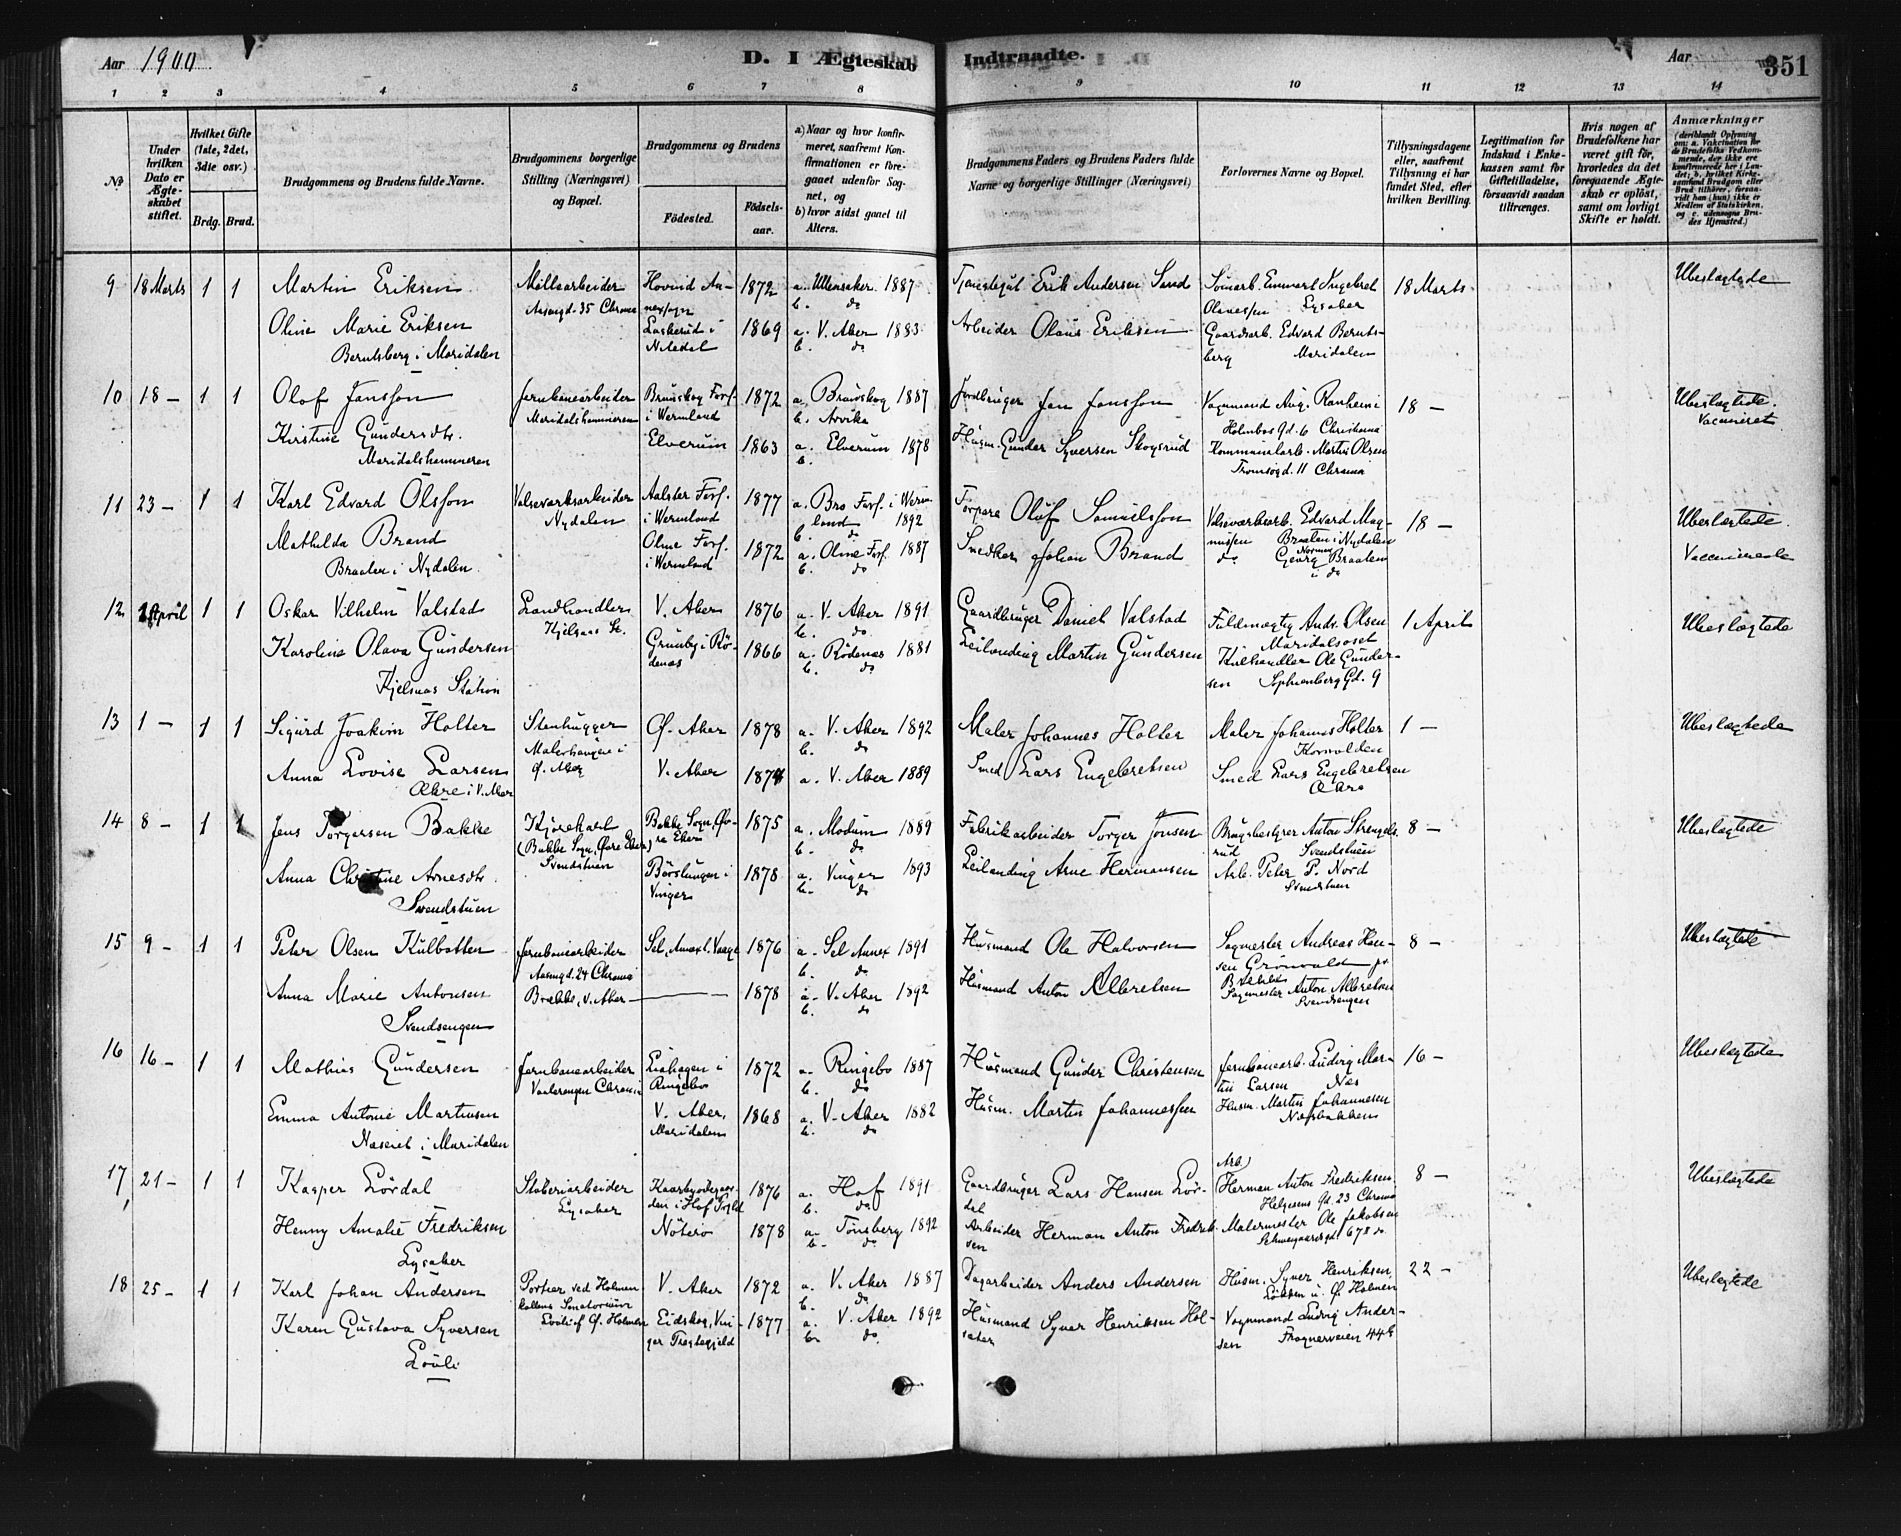 Aar 1900.
D. I Ægteskab Indtraadte.
Aar
351
1 2 3 4 5 6 7 8 9 10 11 12 13 14
№
Under hvilken Dato er Ægteskabet stiftet.
Hvilket Gifte (1ste, 2det, 3die osv.)
Brdg. Brud.
Brudgommens og Brudens fulde Navne.
Brudgommens borgerlige Stilling (Næringsvei) og Bopæl.
Brudgommens og Brudens
Fødested.
Födselsaar.
a) Naar og hvor konfirmeret, saafremt Konfirmationen er foregaaet udenfor Sognet, og
b) hvor sidst gaaet til Alters.
Brudgommens Faders og Brudens Faders fulde Navne og borgerlige Stillinger (Næringsvei)
Forlovernes Navne og Bopæl.
Tillysningsdagene eller, saafremt Tillysning ei har fundet Sted, efter hvilken Bevilling.
Legitimation for Indskud i Enkekassen samt for Giftetilladelse, forsaavidt saadan tiltrænges.
Hvis nogen af Brudefolkene har været gift før, hvorledes da det foregaaende Ægteskab er oplöst, samt om lovligt Skifte er holdt.
Anmærkninger
(deriblandt Oplysning om: a. Vakcination for de Brudefolks Vedkommende, der ikke ere konfirmerede her i Landet; b. hvilket Kirkesamfund Brudgom eller Brud tilhörer, forsaavidt han (hun) ikke er Medlem af Statskirken, og c. udensogns Brudes Hjemsted.)
9 18 Marts 1 1 Martin Eriksen Møllearbeider Hovind Annexsogn 1872 a. Ullensaker 1887 b. do Tjenestegut Erik Andersen Sand Emmert Ingebret Olaussen Lysaker 18 Marts Ubeslægtede
Oline Marie Eriksen Berntsberg i Maridalen i Nitedal 1869 a. V. Aker 1883 b. do Arbeider Olaus Eriksen Gaardsarb. Edvard Berntsberg Maridalen
10 18 — 1 1 Olof Jansson Jernbanearbeider Maridalshammeren Brunskog Fors. i Wermland 1872 a. Brunskog 1887 b. Arvika Jordbruger Jan Jansson Vognmand Aug. Ranheim Holmbos Gd. 6 Christiania 18 — Ubeslægtede. Vaccineret
Kirstine Gundersdtr. Maridalshammeren Elverum 1863 a. Elverum 1878 b. Husm. Gunder Syversen Skogsrud Kommunalarb. Martin Olsen Tromsøgd. 11 Chrania
11 23 — 1 1 Karl Edvard Olsson Valseværksarbeider Nydalen Aalster Fors. i Wermland 1877 a. Bro Fors. i Wermland 1892 b. do Torpare Oluf Samuelsson Valseværksarb. Edvard Magnussen Braaten i Nydalen 18 — Ubeslægtede.
Mathilda Brand Braaten i Nydalen. Olme Fors. i Wermland 1872 a. Olme Fors. 1887 b. do Snedker Johan Brand do Georg Norman Braaten i do Vaccinerede
12 1 April 1 1 Oskar Vilhelm Valstad Landhandler Kjelsaas St. V. Aker 1876 a. V. Aker 1891 b. do Gaardbruger Daniel Valstad Fuldmægtig Andr. Olsen Maridalsoset 1 April Ubeslægtede
Karoline Olava Gundersen Kjelsaas Station Grimby i Rødenæs 1866 a. Rødenæs 1881 b. do Leilænding Martin Gundersen Kulhandler Ole Gundersen Sophienberg Gd. 9
13 1 — 1 1 Sigurd Joakim Holter Stenhugger Malerhaugen i Ø. Aker Ø. Aker 1878 a. V. Aker 1892 b. do Maler Johannes Holter Maler Johannes Holter Kornvolden 1 — Ubeslægtede
Anna Lovise Larsen Økre i V. Aker V. Aker 1874 a. V. Aker 1889 Smed Lars Engebretsen Smed Lars Engebretsen Økre
14 8 — 1 1 Jens Torgersen Bakke Kjørekarl (Bakke Sogn, Øvre Eker) Svendstuen Bakke Sogn, Øvre Eker 1875 a. Modum 1889 b. do Fabrikarbeider Torger Jonsen Brugsbestyrer Anton Strengelsrud Svendstuen 8 — Ubeslægtede
Anna Christine Arnesdtr. Svendstuen Børslungen i Vinger 1878 a. Vinger 1893 b. do Leilænding Arne Hermansen Arb. Peter P. Nord Svendstuen
15 9 — 1 1 Peter Olsen Kulbotten Jernbanearbeider Aasengd. 24 Chrania Brække, V. Aker Sel, Annex t. Vaage 1876 a. Sel Annex 1891 b. do Husmand Ole Halvorsen Sagmester Andreas Hansen Grønvold pr. Brække 8 — Ubeslægtede
Anna Marie Antonsen Svendsengen — 1878 a. V. Aker 1892 b. do Husmand Anton Albretsen Sagmester Anton Albretsen Svendsengen
16 16 — 1 1 Mathias Gundersen Jernbanearbeider Vaalerengen Chrania Liahagen i Ringebo 1872 a. Ringebo 1887 b. do Husmand Gunder Christensen Jernbanearb. Ludvig Martin Larsen Næs 16 — Ubeslægtede
Emma Antonie Martinsen Næseie i Maridalen V. Aker, Maridalen 1868 a. V. Aker 1882 b. do Husm. Martin Johannessen Husm. Martin Johannesen Næsbakken
17 21 — 1 1 Kasper Lørdal Stoberiarbeider Lysaker i Hof 1876 a. Hof 1891 b. do Gaardbruger Lars Hansen Lørdal Arb. Herman Anton Fredriksen Helgesens Gd. 23 Chrania 8 — Ubeslægtede
Henny Amalie Fredriksen Lysaker Nøterø 1878 a. Tønsberg 1892 b. do Arbeider Herman Anton Fredriksen Malermester Ole Jakobsen Schweigaardsgd. 67 do
18 25 — 1 1 Karl Johan Andersen Portier ved Holmenkollens Sanatorium Ø. Holmen V. Aker 1872 a. V. Aker 1887 b. do Dagarbeider Anders Andersen Husm. Syver Henriksen Ø. Holmen 22 — Ubeslægtede
Karen Gustava Syversen Løvli Eidskog, Vinger Præstegjeld 1877 a. V. Aker 1892 b. do Husmand Syver Henriksen Vognmand Ludvig Andersen Frognerveien 44